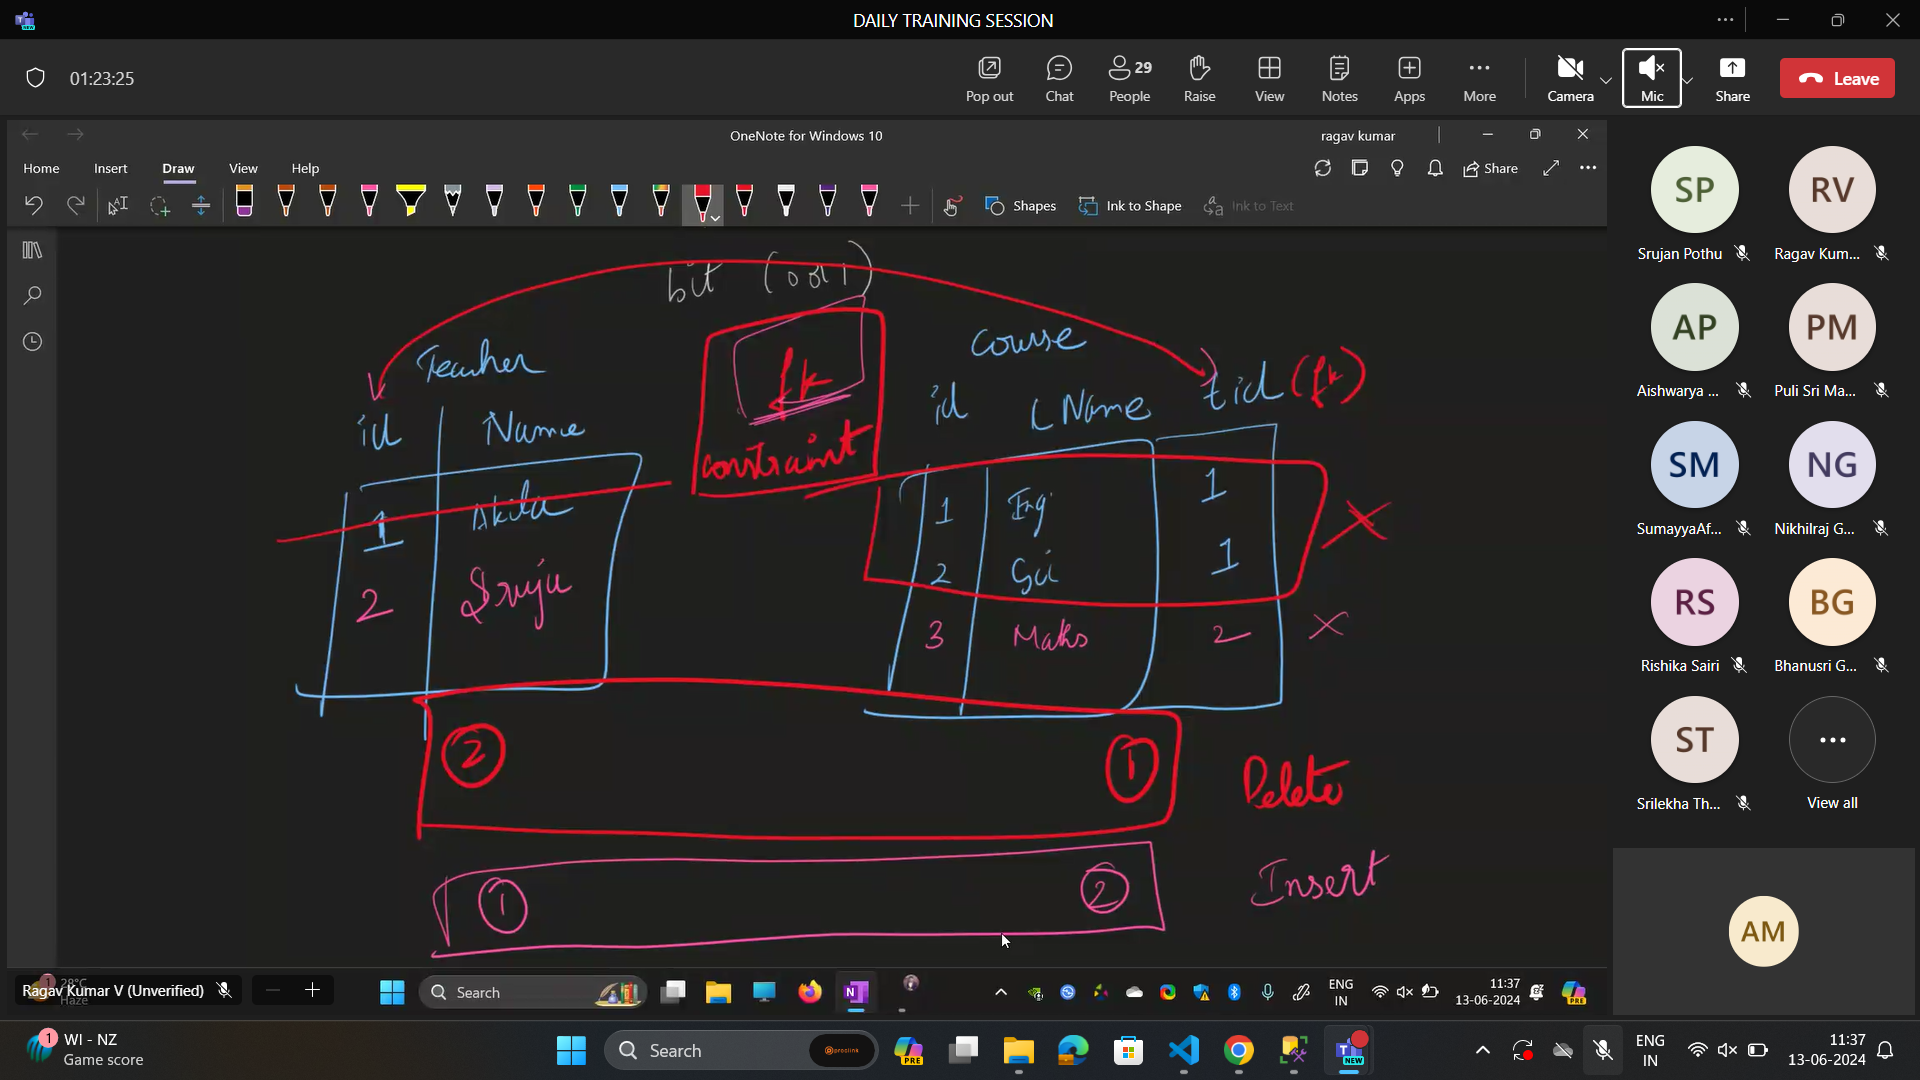 DAILY TRAINING SESSION
01:23:25
Pop out
Chat
29
People
Raise
View
Notes
Apps
More
Camera
Mic
Share
Leave
OneNote for Windows 10
ragav kumar
Home
Insert
Draw
View
Help
Share
Shapes
Ink to Shape
Ink to Text
bit (0 or 1)
Teacher
id
Name
1 Akila
2 Sruju
fk
constraint
Course
id
CName
tid (fk)
1 Eng 1
2 Sci 1
3 Maths 2
2
1
Delete
1
2
Insert
SP
Srujan Pothu
RV
Ragav Kum...
AP
Aishwarya ...
PM
Puli Sri Ma...
SM
SumayyaAf...
NG
Nikhilraj G...
RS
Rishika Sairi
BG
Bhanusri G...
ST
Srilekha Th...
View all
AM
1
28°C
Haze
Ragav Kumar V (Unverified)
Search
ENG
IN
11:37
13-06-2024
PRE
1
WI - NZ
Game score
Search
prolink
PRE
NEW
ENG
IN
11:37
13-06-2024